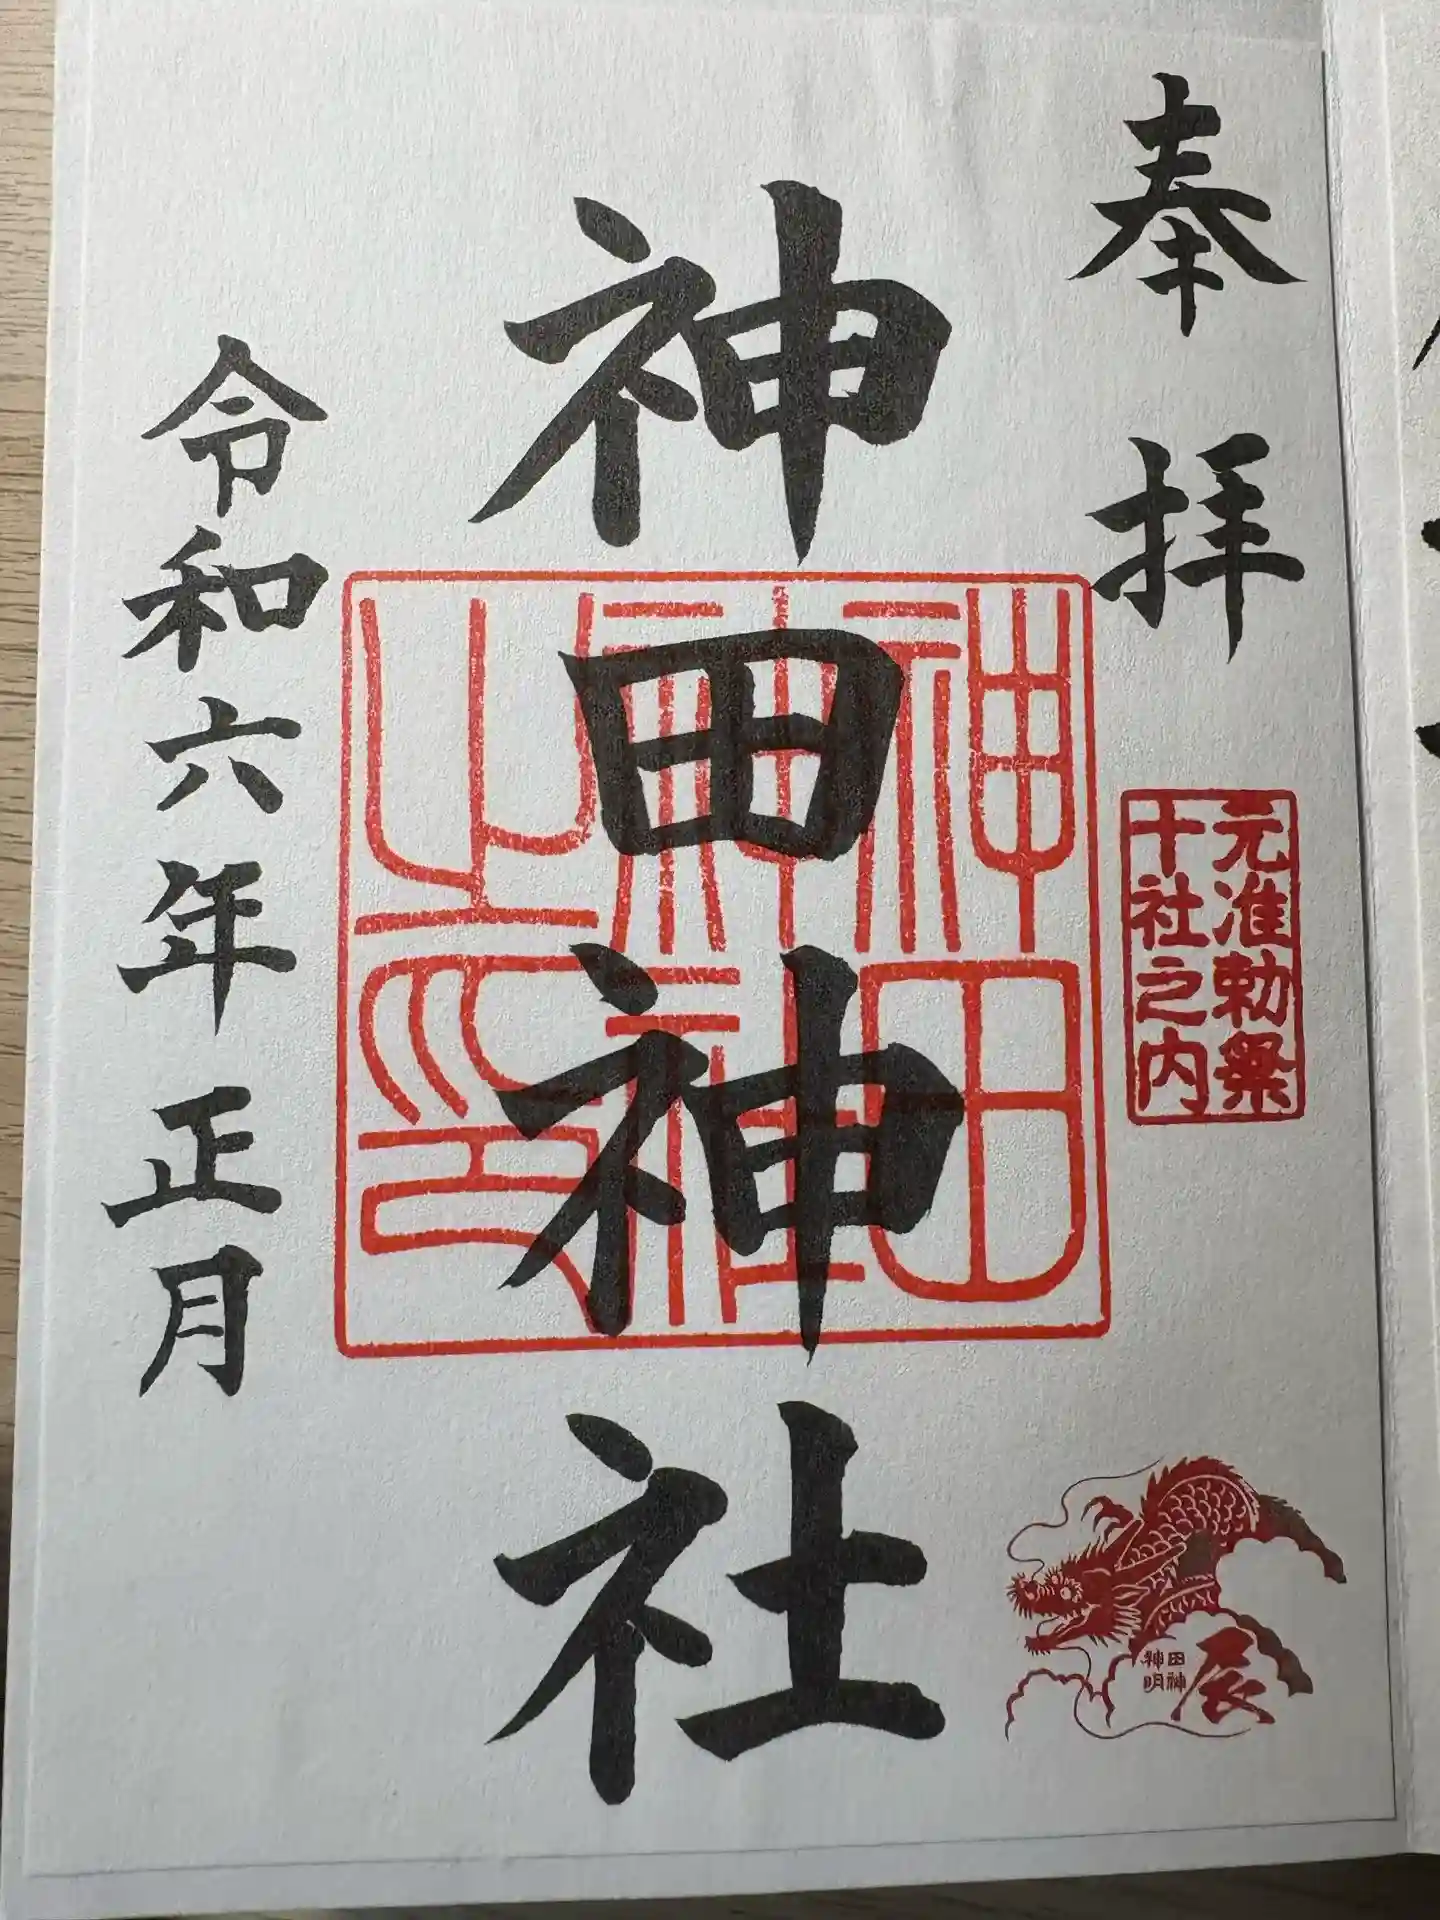 奉拝
元准勅祭
十社之内
辰
田神
神明
神田神社
神田
神社
之印
令和六年正月